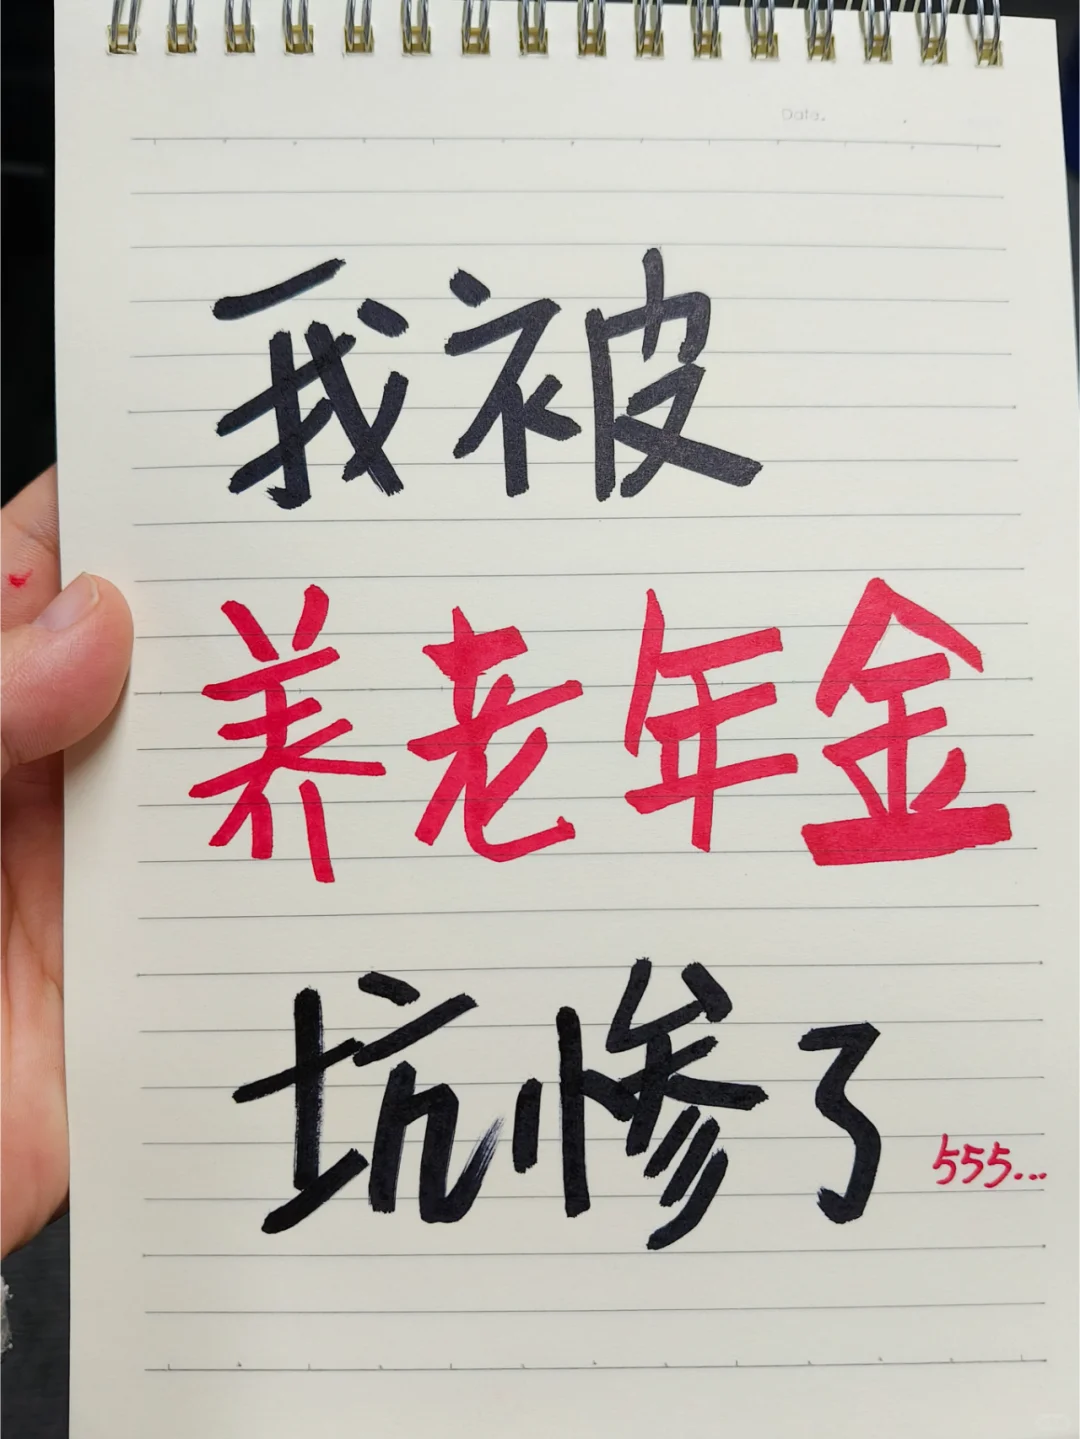 Date.
我被
养老年金
坑惨了
555...